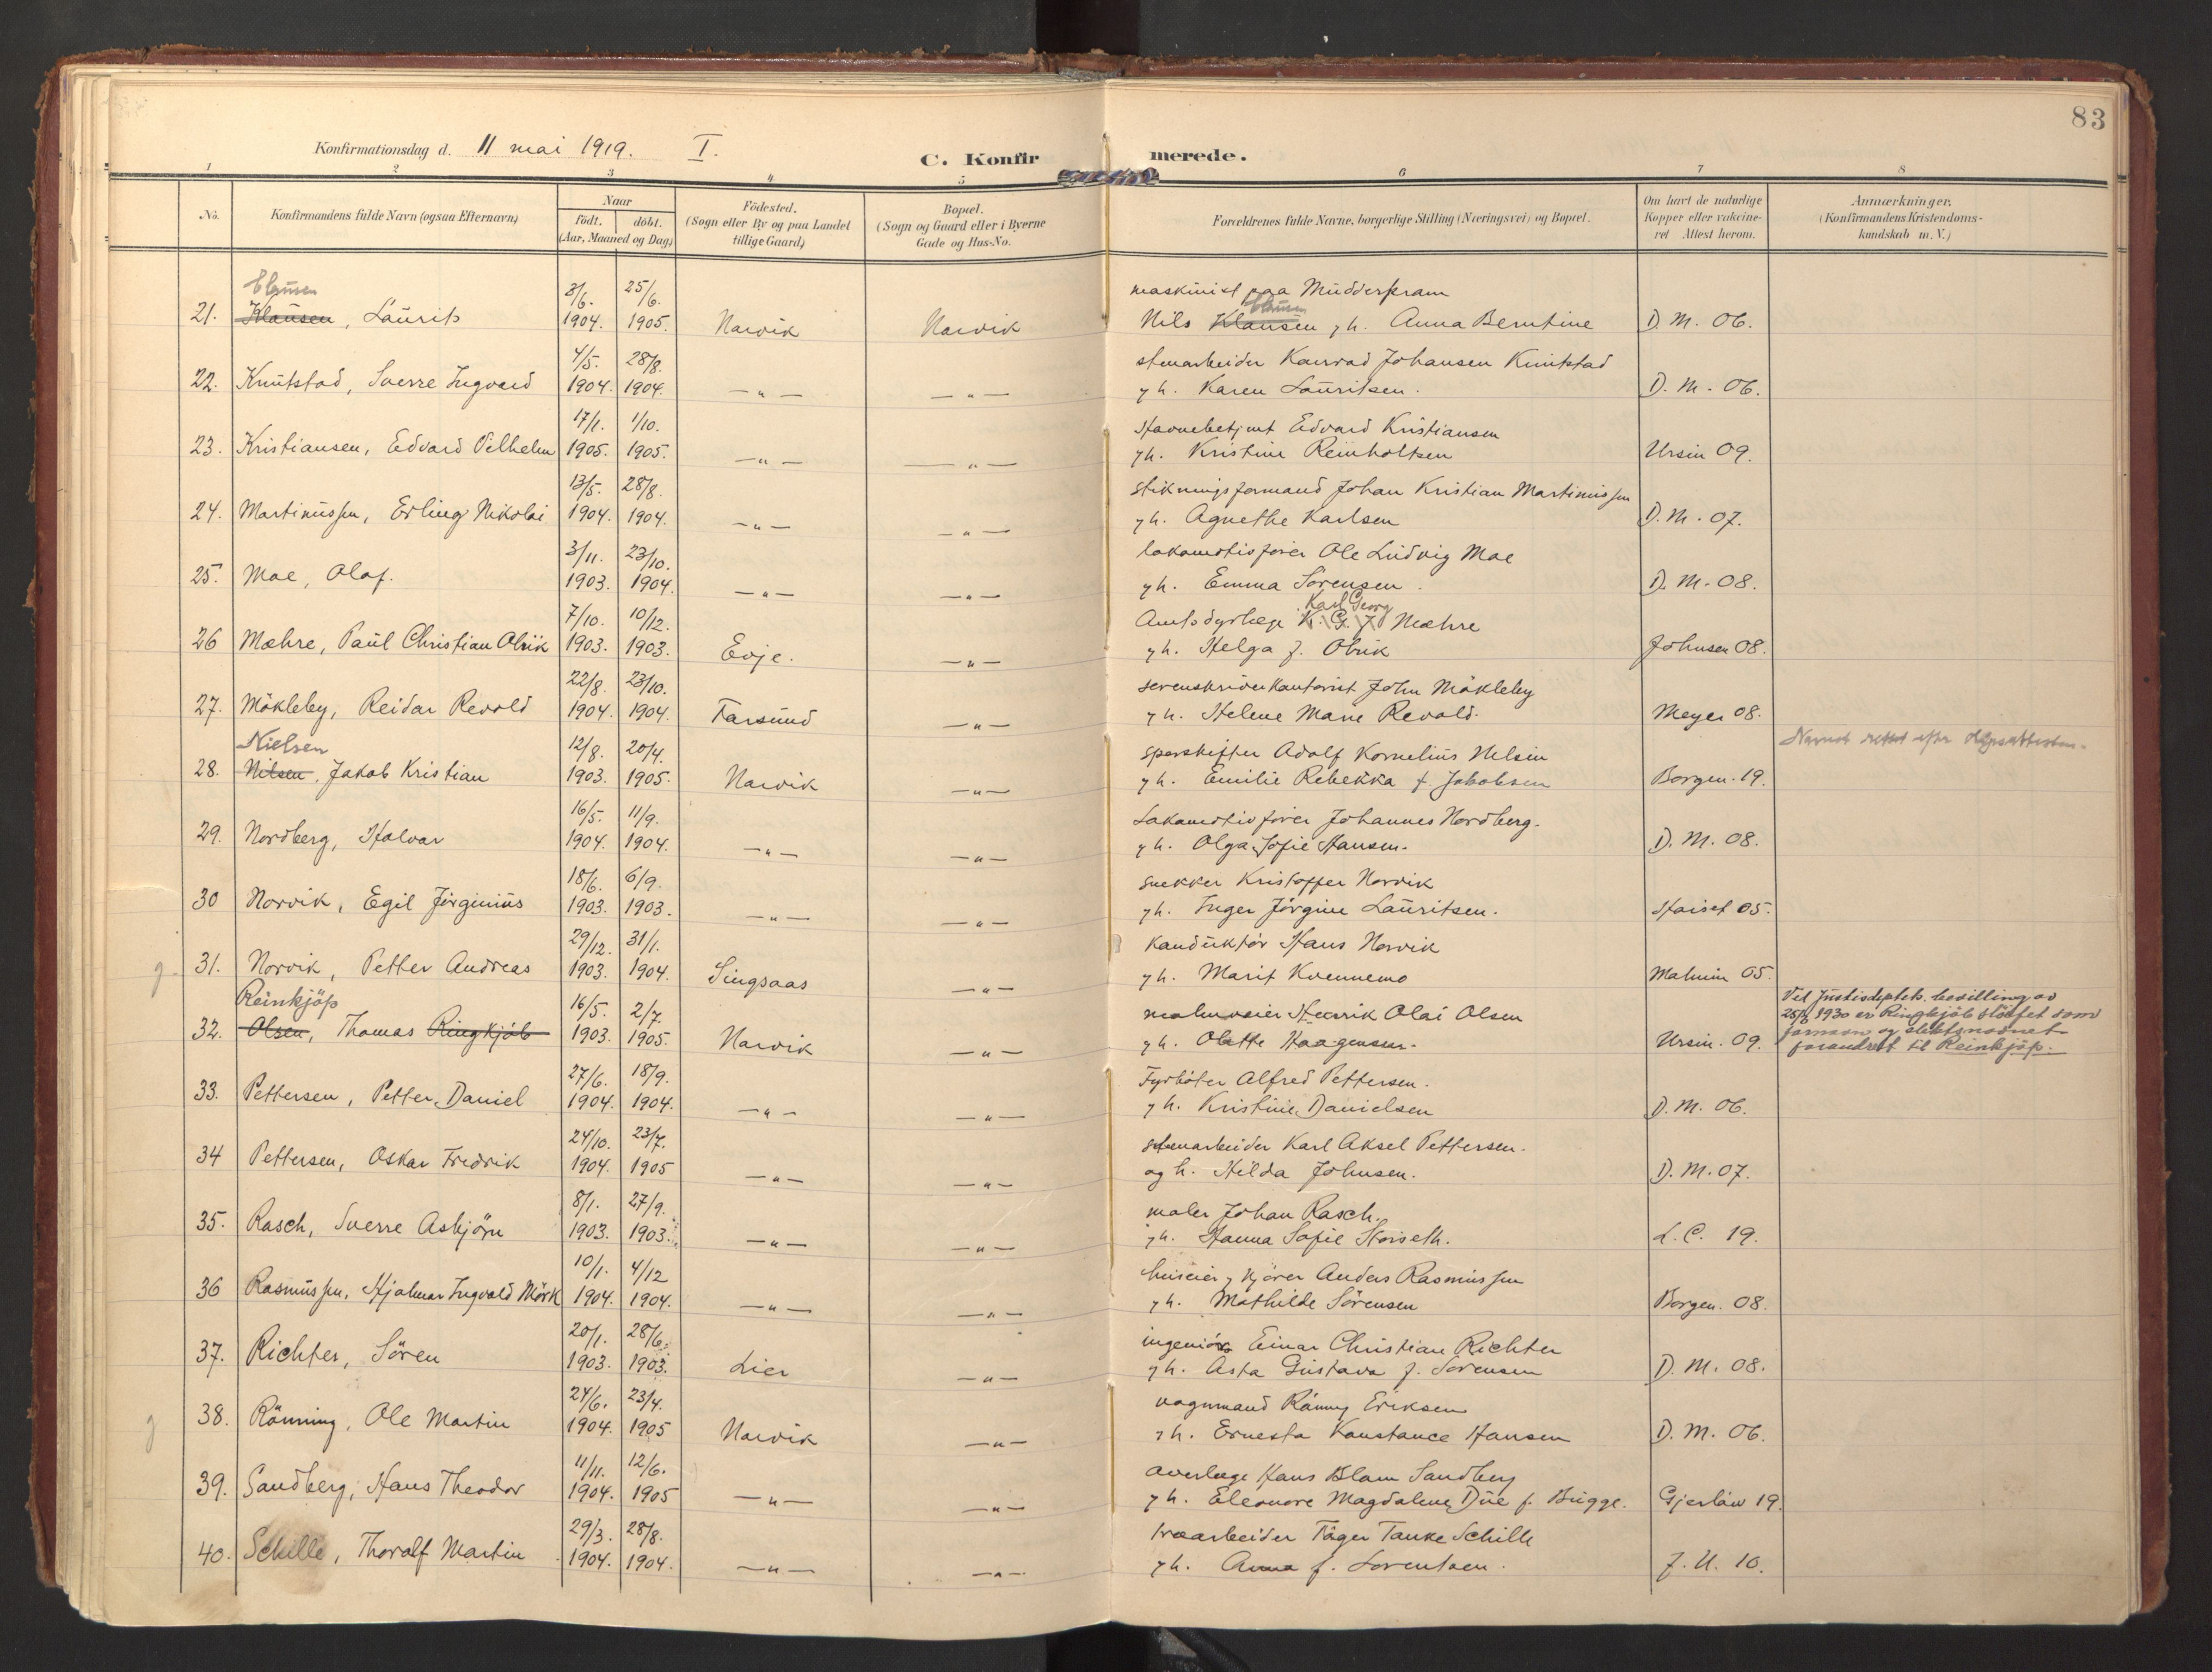 83
Konfirmationsdag d. 11 mai 1919. I.
C. Konfirmerede.
1 2 3 4 5 6 7 8
No.
Konfirmandens fulde Navn (ogsaa Efternavn)
Naar
født. døbt.
(Aar, Maaned og Dag)
Fødested.
(Sogn eller By og paa Landet
tillige Gaard)
Bopæl.
(Sogn og Gaard eller i Byerne
Gade og Hus-No.
Forældrenes fulde Navne, borgerlige Stilling (Næringsvei) og Bopæl.
Om havt de naturlige
Kopper eller vakcine-
ret Attest herom.
Anmærkninger,
(Konfirmandens Kristendoms-
kundskab m. V.)
Clausen 3/6. 25/6. maskinist paa Mudderpram
Clausen
21. Klausen, Laurits 1904. 1905. Narvik Narvik Nils Klausen og h. Anna Berntine D. M. 06.
4/5. 28/8. stenarbeider Konrad Johansen Knutstad
22. Knutstad, Sverre Ingvard 1904. 1904. —"— —"— og h. Karen Lauritsen. D. M. 06.
17/1. 1/10. Havnebetjent Edvard Kristiansen
23. Kristiansen, Edvard Vilhelm 1905. 1905. —"— —"— og h. Kristine Reinholtsen Ursin 09.
13/5. 28/8. stikningsformand Johan Kristian Martinussen
24. Martinussen, Erling Nikolai 1904. 1904. —"— —"— og h. Agnethe Karlsen D. M. 07.
3/11. 23/10. lokomotivfører Ole Ludvig Moe
25. Moe, Olaf. 1903. 1904. —"— —"— og h. Emma Sørensen. D. M. 08.
Karl Georg
7/10. 10/12. Amtsdyrlæge K. G. J. Mæhre
26 Mæhre, Paul Christian Olrik 1903. 1903. Evje. —"— og h. Helga f. Olrik Johnsen 08.
22/8. 23/10. sorenskriverkontorist John Mökleby
27. Mökleby, Reidar Revold 1904. 1904. Farsund —"— og h. Helene Marie Revold. Meyer 08.
Nielsen 12/8. 20/4. sporskifter Adolf Kornelius Nilsen Navnet rettet efter daapsattesten.
28. Nilsen, Jakob Kristian 1903. 1905. Narvik —"— og h. Emilie Rebekka f. Jakobsen Borgen. 19.
16/5. 11/9. Lokomotivfører Johannes Nordberg.
29. Nordberg, Halvar 1904. 1904. —"— —"— og h. Olga Sofie Hansen. D. M. 08.
18/6. 6/9. snekker Kristoffer Norvik
30 Norvik, Egil Jørginius 1903. 1903. —"— —"— og h. Inger Jørgine Lauritsen. Hoiset 05.
29/12. 31/1. Konduktør Hans Norvik
g. 31. Norvik, Petter Andreas 1903. 1904. Singsaas —"— og h. Marit Kvennemo Malmin 05.
Reinkjöp 16/5. 2/7. malmveier Henrik Olai Olsen
32. Olsen, Thomas Ringkjöb 1903. 1905. Narvik —"— og h. Olette Haagensen. Ursin. 09.
Ved Justisdeptets. bevilling av
25/8 1930 er Ringkjöb slöifet som
fornavn og slektsnavnet
forandret til Reinkjöp.
27/6. 18/9. Fyrbøter Alfred Pettersen.
33. Pettersen, Petter Daniel 1904. 1904. —"— —"— og h. Kristine Danielsen D. M. 06.
24/10. 23/7. stenarbeider Karl Aksel Pettersen.
34 Pettersen, Oskar Fredrik 1904. 1905 —"— —"— og h. Hilda Johnsen. D. M. 07.
8/1. 27/9. maler Johan Rasch.
35. Rasch, Sverre Asbjörn 1903. 1903. —"— —"— og h. Hanna Sofie Hoiseth. L. C. 19.
10/1. 4/12 huseier og kjører Anders Rasmussen
36 Rasmussen, Hjalmar Ingvald Mörk 1904. 1904. —"— —"— og h. Mathilde Sörensen Borgen. 08.
20/1. 28/6. ingeniør Einar Christian Richter
37. Richter, Sören 1903. 1903. Lier —"— og h. Asta Gustava f. Sörensen D. M. 08.
24/6. 23/4. vognmand Rönning Eriksen
g 38. Rönning, Ole Martin 1904. 1905 Narvik —"— og h. Ernesta Konstance Hansen D. M. 06.
11/11. 12/6. overlæge Hans Blom Sandberg
39. Sandberg, Hans Theodor 1904. 1905 —"— —"— og h. Eleonore Magdalene Due f. Bugge. Gjerløw 19.
29/3. 28/8. træarbeider Tøger Tanke Schille
40. Schille, Thoralf Martin 1904. 1904. —"— —"— og h. Anna f. Lorentsen. J. U. 10.